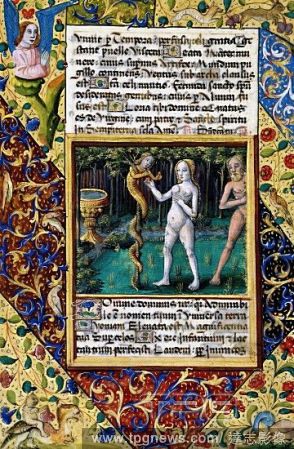 Tempora: perfusa celi gra
Gestant puelle viscera Beata Mater mu
nere cuius supernus Artifex Mundum pu
gillo continens Ventris sub archa clausus
est Beata celi nuncio fecunda sancto spu
desideratus gentibus cuius per Alvum fu
sus est Gloria tibi domine natus
es de Virgine cum patre et Sancto spiritu
In Sempiterna Secla Amen
Domine dominus nr Admirabi
le est nomen tuum In Universa terra
Quoniam Elevata est Magnificentia
tua Super celos Ex ore Infantium et lac
tentium perfecisti Laudem Inimicos
www.tpgnews.com 達志影像